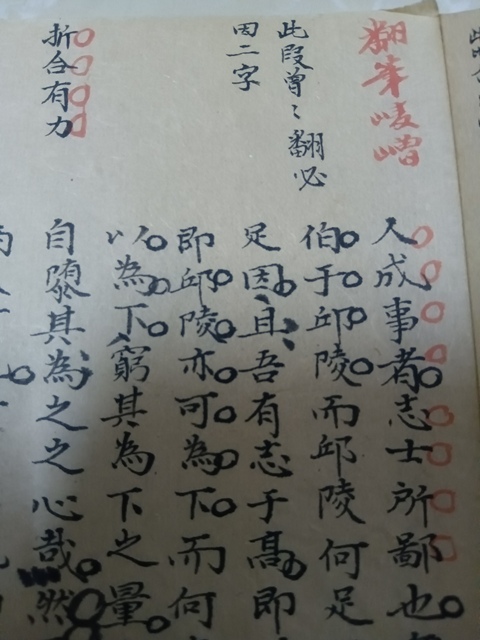 翻筆崚嶒
此段曾〻翻必
因二字
折合有力
人成事者志士所鄙也
伯于邱陵而邱陵何足
足因且吾有志于高即
即邱陵亦可為下而何
以為下窮其為下之量
自隳其為之之心哉然